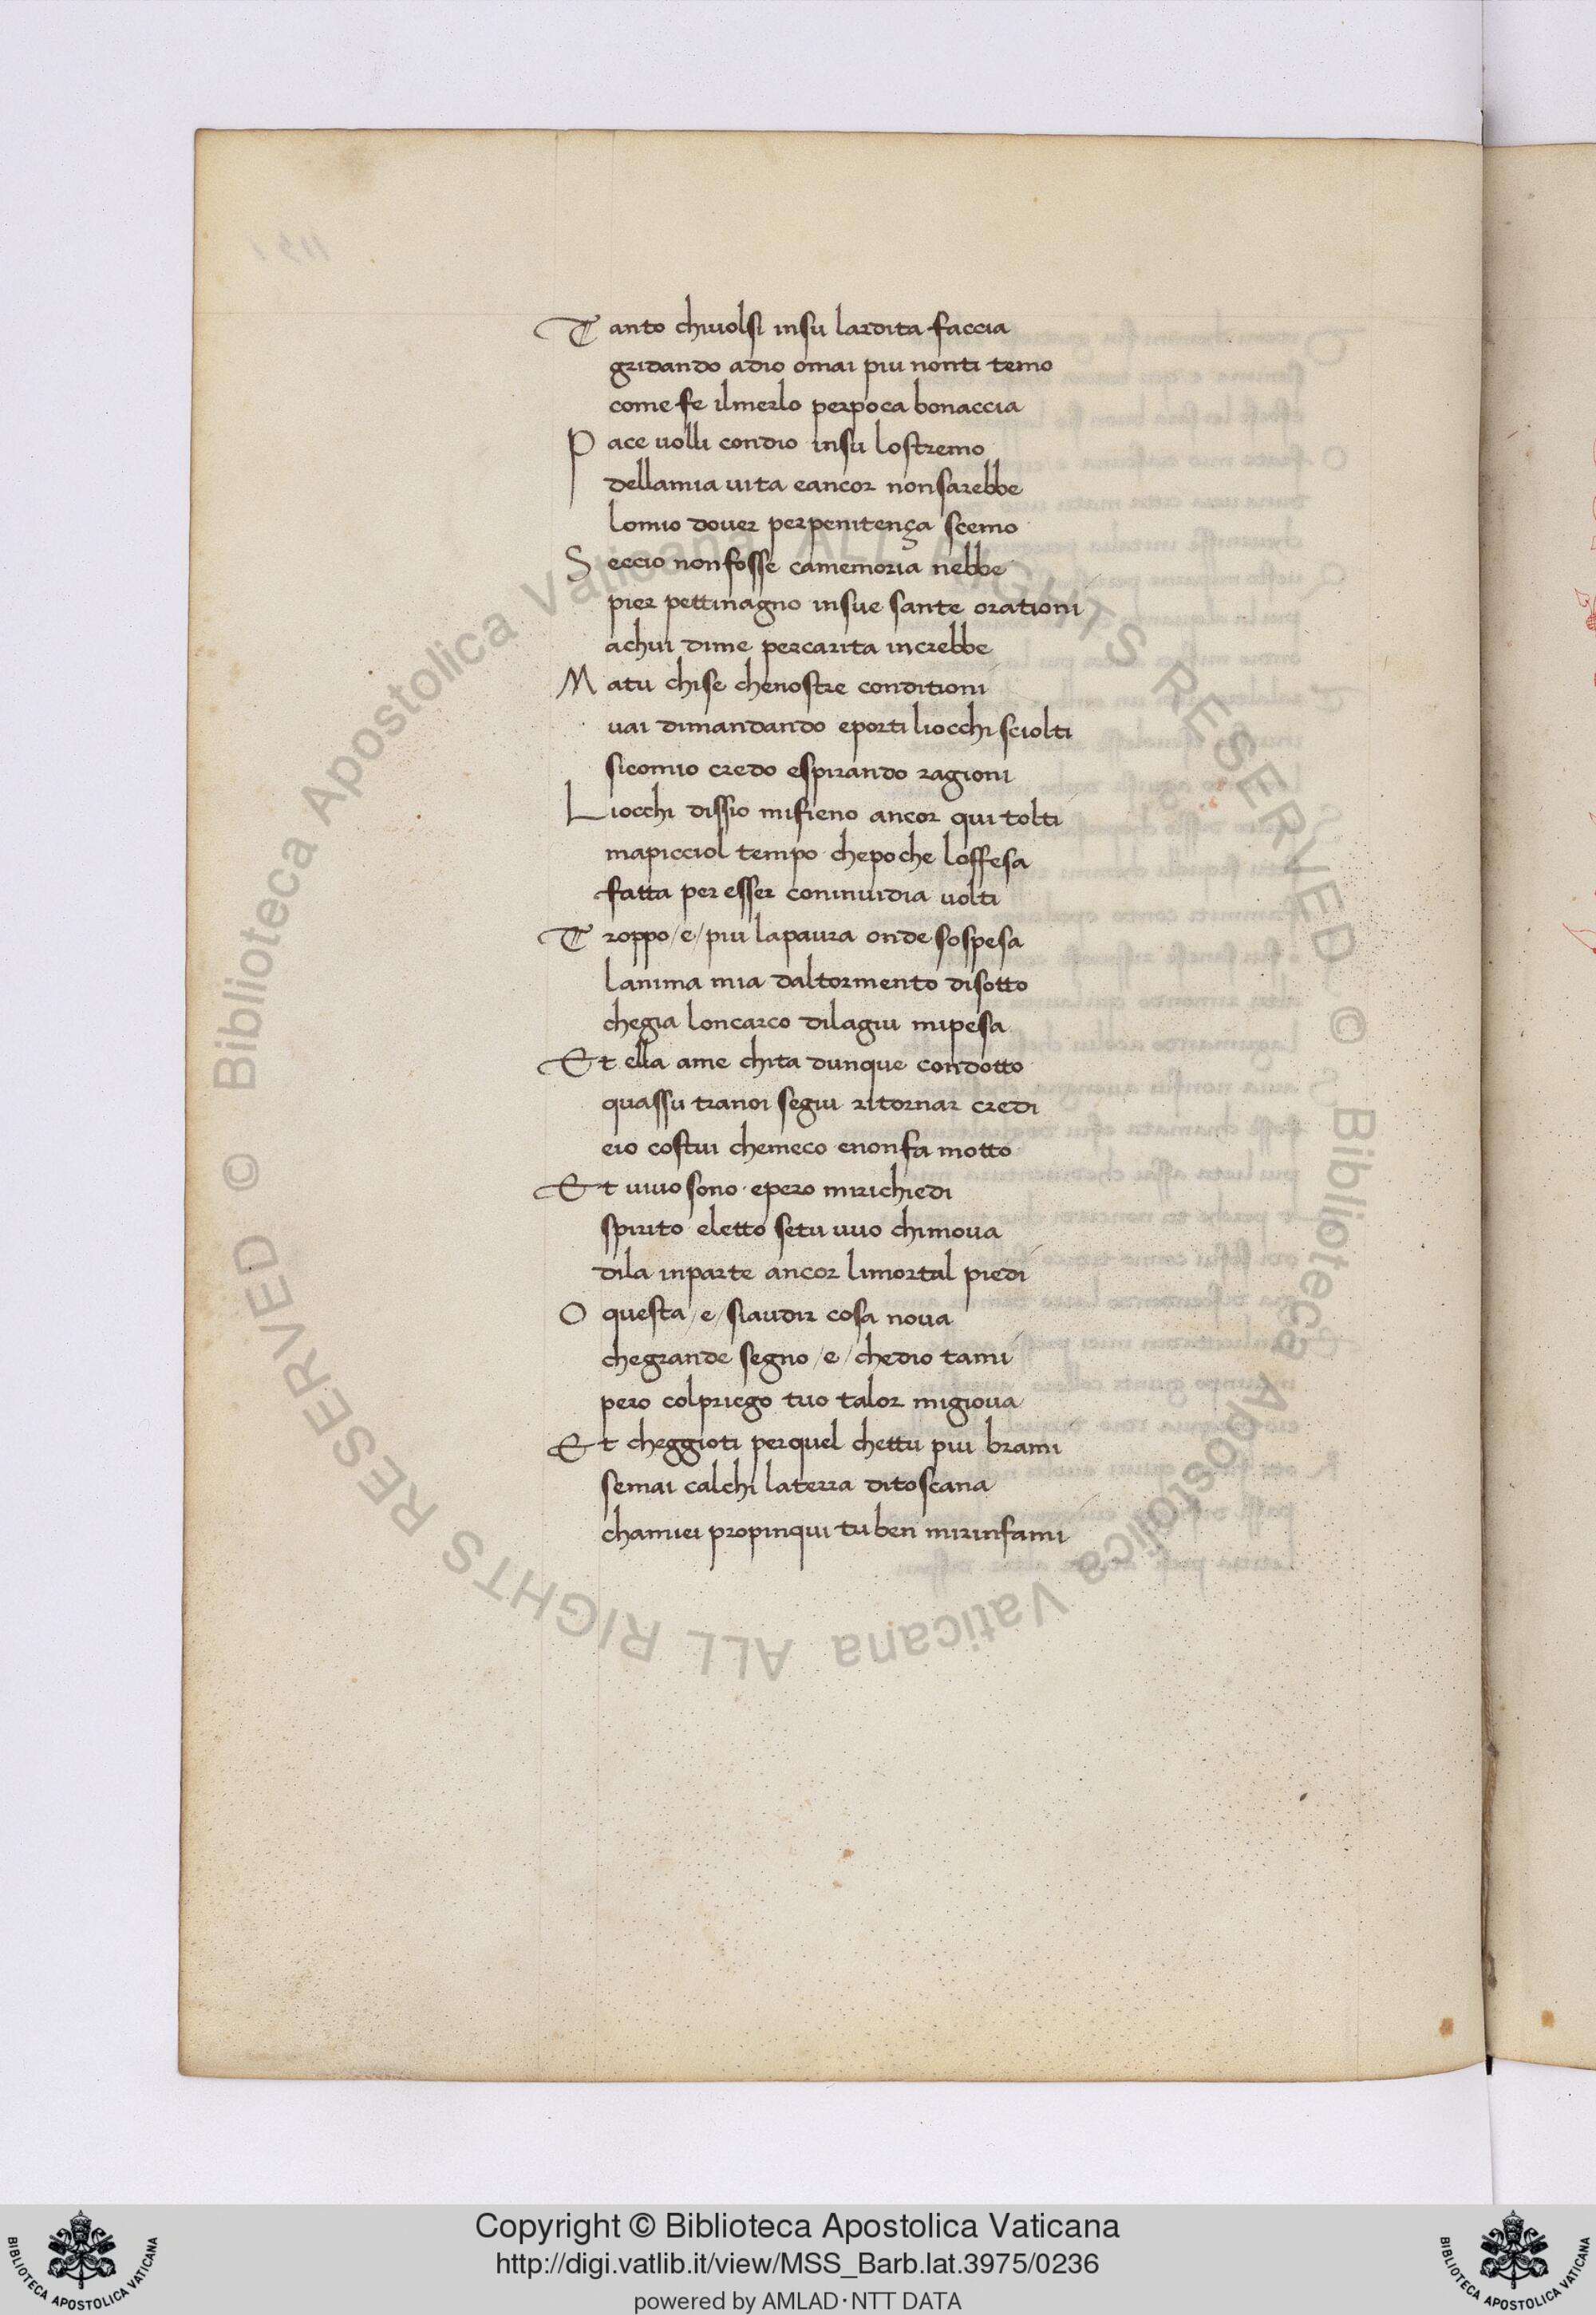 Tanto chiuolsi insu lardita faccia
gridando adio omai piu nonti temo
come fe ilmerlo perpoca bonaccia
Pace uolli condio insu lostremo
dellamia uita eancor nonsarebbe
lomio douer perpenitença scemo
Seccio nonfosse camemoria nebbe
pier pettinagno insue sante orationi
achui dime percarita increbbe
Matu chise chenostre conditioni
uai dimandando eporti liocchi sciolti
sicomio credo espirando ragioni
Liocchi dissio mifieno ancor qui tolti
mapicciol tempo chepoche loffesa
fatta per esser coninuidia uolti
Troppo/e/piu lapaura onde sospesa
lanima mia daltormento disotto
chegia loncarco dilagiu mipesa
Et ella ame chita dunque condotto
quassu tranoi segiu ritornar credi
eio costui chemeco enonfa motto
Et uiuo sono epero mirichiedi
spirito eletto setu uuo chimoua
dila inparte ancor limortal piedi
O questa/e/siaudir cosa noua
chegrande segno/e/chedio tami
pero colpriego tuo talor migioua
Et cheggioti perquel chettu piu brami
semai calchi laterra ditoscana
chamiei propinqui tuben mirinfami
© Biblioteca Apostolica Vaticana ALL RIGHTS RESERVED
© Biblioteca Apostolica Vaticana ALL RIGHTS RESERVED
Copyright © Biblioteca Apostolica Vaticana
http://digi.vatlib.it/view/MSS_Barb.lat.3975/0236
powered by AMLAD·NTT DATA
BIBLIOTECA APOSTOLICA VATICANA
BIBLIOTECA APOSTOLICA VATICANA